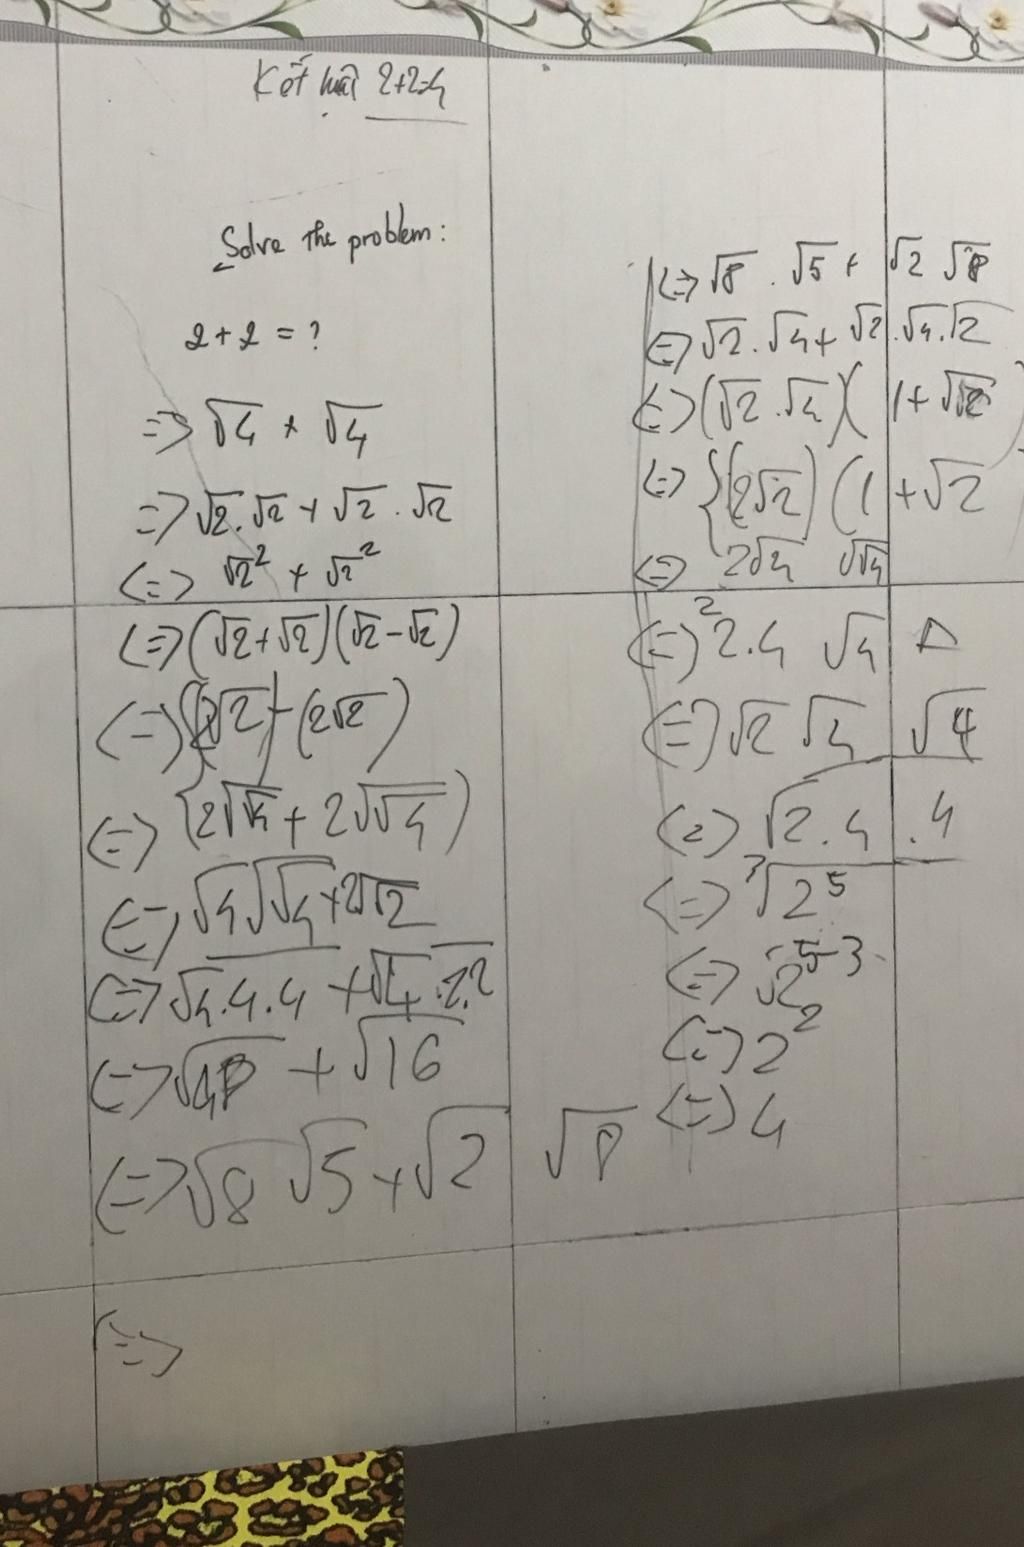 Kết luận 2+2=4
Solve the problem:
2 + 2 = ?
=> √4 + √4
=> √2.√2 + √2.√2
<=> √2² + √2²
<=> (√2+√2)(√2-√2)
<=> (2√2) - (2√2)
<=> (2√√4 + 2√√4)
<=> √4√√4 + 2√√2
<=> √4.4.4 + √4.2.2
<=> √48 + √16
<=> √8 √5 + √2 √8
<=>
<=> √8 . √5 + √2 √8
<=> √2.√4 + √2.√4.√2
<=> (√2.√4)(1+√2)
<=> {(2√2)(1+√2
<=> 2√4 √√4
<=> ²2.4 √4
<=> √2 √4 √4
<=> √2.4.4
<=> ³√2⁵
<=> √2⁵⁻³
<=> 2²
<=> 4